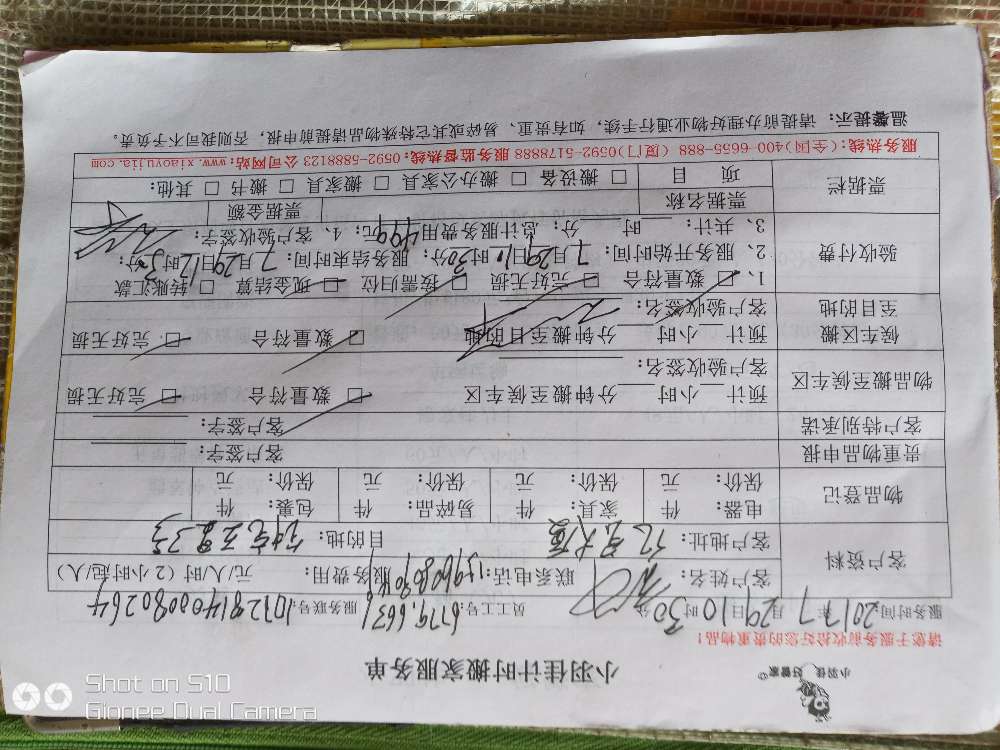 小羽佳 好管家
小羽佳计时搬家服务单
请您于服务前收拾好您的贵重物品!
服务时间: 2017年7月29日10时30分 员工工号: 6179.6631 服务联号: 101281400080264
客户资料
客户姓名: 联系电话: 服务费用: 元/人/(2小时起/人)
客户地址: 目的地:
物品登记
电器: 件 家具: 件 易碎品: 件 包裹: 件
保价: 元 保价: 元 保价: 元 保价: 元
贵重物品申报 客户签字:
客户特别承诺 客户签字:
物品搬至候车区
预计 小时 分钟搬至候车区 □ 数量符合 □ 完好无损
客户验收签名:
候车区搬至目的地
预计 小时 分钟搬至目的地 □ 数量符合 □ 完好无损
客户验收签名:
验收付费
1、□ 数量符合 □ 完好无损 □ 按需归位 □ 现金结算 □ 转账汇款
2、服务开始时间: 7月29日10时30分; 服务结束时间: 7月29日12时30分;
3、共计: 时 分; 总计服务费用499元; 4、客户验收签字:
票据栏
票据名称 票据金额
项目 □ 搬设备 □ 搬办公家具 □ 搬家具 □ 搬书 □ 其他:
服务热线:(全国)400-6655-888 (厦门)0592-5178888 服务监督热线:0592-5888123 公司网站:www.xiaoyujia.com
温馨提示: 请提前办理好物业通行手续,如有贵重、易碎或其它特殊物品请提前申报,否则我司不予负责。
Shot on S10
Gionee Dual Camera